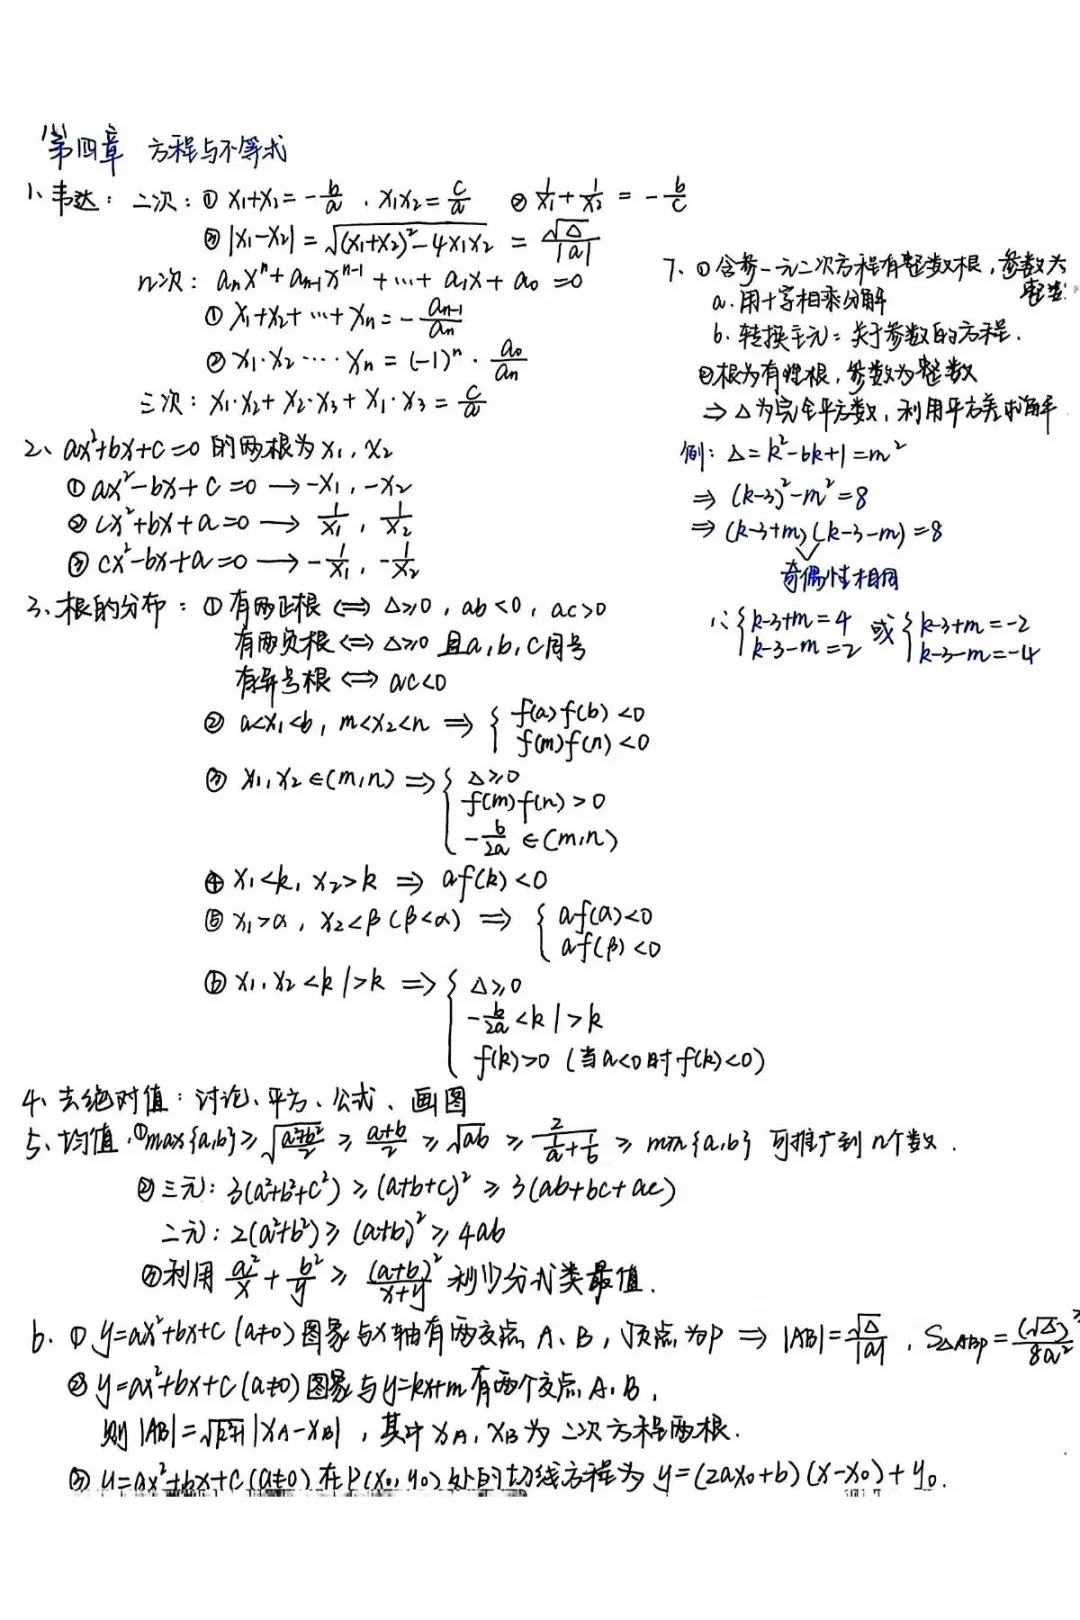 第四章 方程与不等式
1、韦达：二次：① x₁+x₂=-b/a，x₁x₂=c/a ② 1/x₁+1/x₂=-b/c
③ |x₁-x₂|=√((x₁+x₂)²-4x₁x₂)=√Δ/|a|
n次：aₙxⁿ+aₙ₋₁xⁿ⁻¹+…+a₁x+a₀=0
① x₁+x₂+…+xₙ=-aₙ₋₁/aₙ
② x₁·x₂…·xₙ=(-1)ⁿ·a₀/aₙ
三次：x₁·x₂+x₂·x₃+x₁·x₃=c/a
2、ax²+bx+c=0的两根为x₁，x₂
① ax²-bx+c=0→-x₁，-x₂
② cx²+bx+a=0→1/x₁，1/x₂
③ cx²-bx+a=0→-1/x₁，-1/x₂
3、根的分布：①有两正根⇔Δ≥0，ab<0，ac>0
有两负根⇔Δ≥0且a，b，c同号
有异号根⇔ac<0
② a<x₁<b，m<x₂<n⇒{f(a)f(b)<0
f(m)f(n)<0
③ x₁，x₂∈(m,n)⇒{Δ≥0
f(m)f(n)>0
-b/2a∈(m,n)
④ x₁<k，x₂>k⇒af(k)<0
⑤ x₁>α，x₂<β(β<α)⇒{af(α)<0
af(β)<0
⑥ x₁，x₂<k|>k⇒{Δ≥0
-b/2a<k|>k
f(k)>0（当a<0时f(k)<0）
4、去绝对值：讨论、平方、公式、画图
5、均值：① max{a,b}≥√((a²+b²)/2)≥(a+b)/2≥√ab≥2/(1/a+1/b)≥min{a,b} 可推广到n个数.
②三元：3(a²+b²+c²)≥(a+b+c)²≥3(ab+bc+ac)
二元：2(a²+b²)≥(a+b)²≥4ab
③利用a²/x+b²/y≥(a+b)²/(x+y)秒分式类最值.
6. ① y=ax²+bx+c(a≠0)图象与x轴有两交点A、B，顶点为P⇒|AB|=√Δ/|a|，S△ABP=(√Δ)³/8a²
② y=ax²+bx+c(a≠0)图象与y=kx+m有两个交点A、B，
则|AB|=√(k²+1)|xA-xB|，其中xA，xB为二次方程两根.
③ y=ax²+bx+c(a≠0)在P(x₀，y₀)处的切线方程为y=(2ax₀+b)(x-x₀)+y₀.
7、①含参一元二次方程有整数根，参数为
整数
a.用十字相乘分解
b.转换主元：关于参数的方程.
②根为有理根，参数为整数
⇒Δ为完全平方数，利用平方差求解
例：Δ=k²-6k+1=m²
⇒(k-3)²-m²=8
⇒(k-3+m)(k-3-m)=8
奇偶性相同
∴{k-3+m=4 或{k-3+m=-2
k-3-m=2 k-3-m=-4